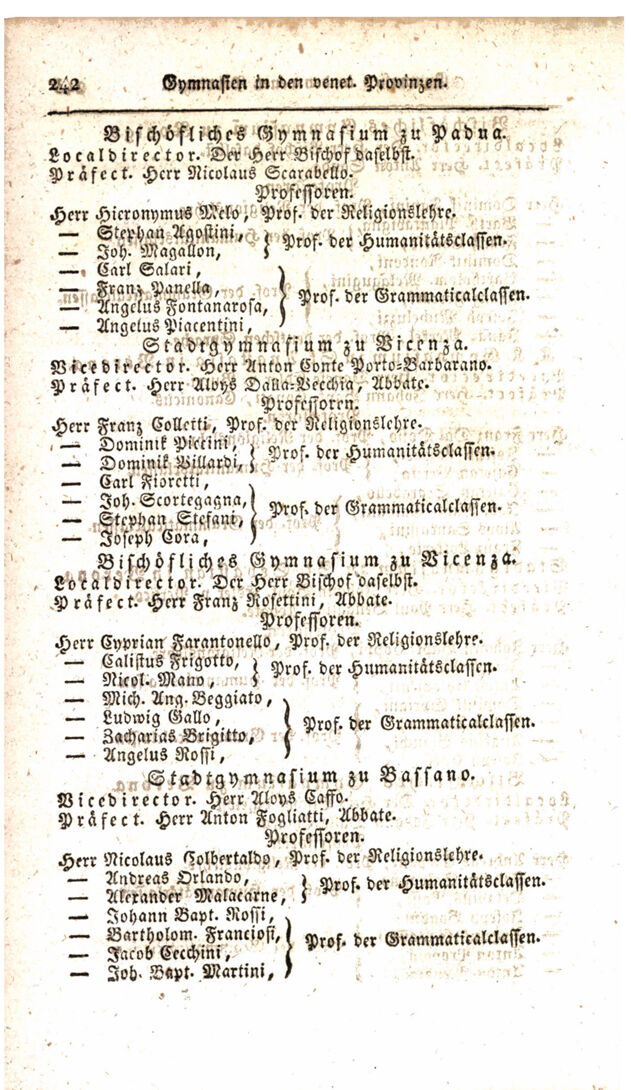 242 Gymnasien in den venet. Provinzen.
Bischöfliches Gymnasium zu Padua.
Localdirector. Der Herr Bischof daselbst.
Präfect. Herr Nicolaus Scarabello.
Professoren.
Herr Hieronymus Melo, Prof. der Religionslehre.
— Stephan Agostini,
— Joh. Magallon,
} Prof. der Humanitätsclassen.
— Carl Salari,
— Franz Panella,
— Angelus Fontanarosa,
— Angelus Piacentini,
} Prof. der Grammaticalclassen.
Stadtgymnasium zu Vicenza.
Vicedirector. Herr Anton Conte Porto-Barbarano.
Präfect. Herr Aloys Dalla-Vecchia, Abbate.
Professoren.
Herr Franz Colletti, Prof. der Religionslehre.
— Dominik Piccini,
— Dominik Villardi,
} Prof. der Humanitätsclassen.
— Carl Fioretti,
— Joh. Scortegagna,
— Stephan Stefani,
— Joseph Cora,
} Prof. der Grammaticalclassen.
Bischöfliches Gymnasium zu Vicenza.
Localdirector. Der Herr Bischof daselbst.
Präfect. Herr Franz Rosettini, Abbate.
Professoren.
Herr Cyprian Farantonello, Prof. der Religionslehre.
— Calistus Frigotto,
— Nicol. Mano,
} Prof. der Humanitätsclassen.
— Mich. Ang. Beggiato,
— Ludwig Gallo,
— Zacharias Brigitto,
— Angelus Rossi,
} Prof. der Grammaticalclassen.
Stadtgymnasium zu Bassano.
Vicedirector. Herr Aloys Caffo.
Präfect. Herr Anton Fogliatti, Abbate.
Professoren.
Herr Nicolaus Colbertaldo, Prof. der Religionslehre.
— Andreas Orlando,
— Alexander Malacarne,
} Prof. der Humanitätsclassen.
— Johann Bapt. Rossi,
— Bartholom. Franciosi,
— Jacob Cecchini,
— Joh. Bapt. Martini,
} Prof. der Grammaticalclassen.